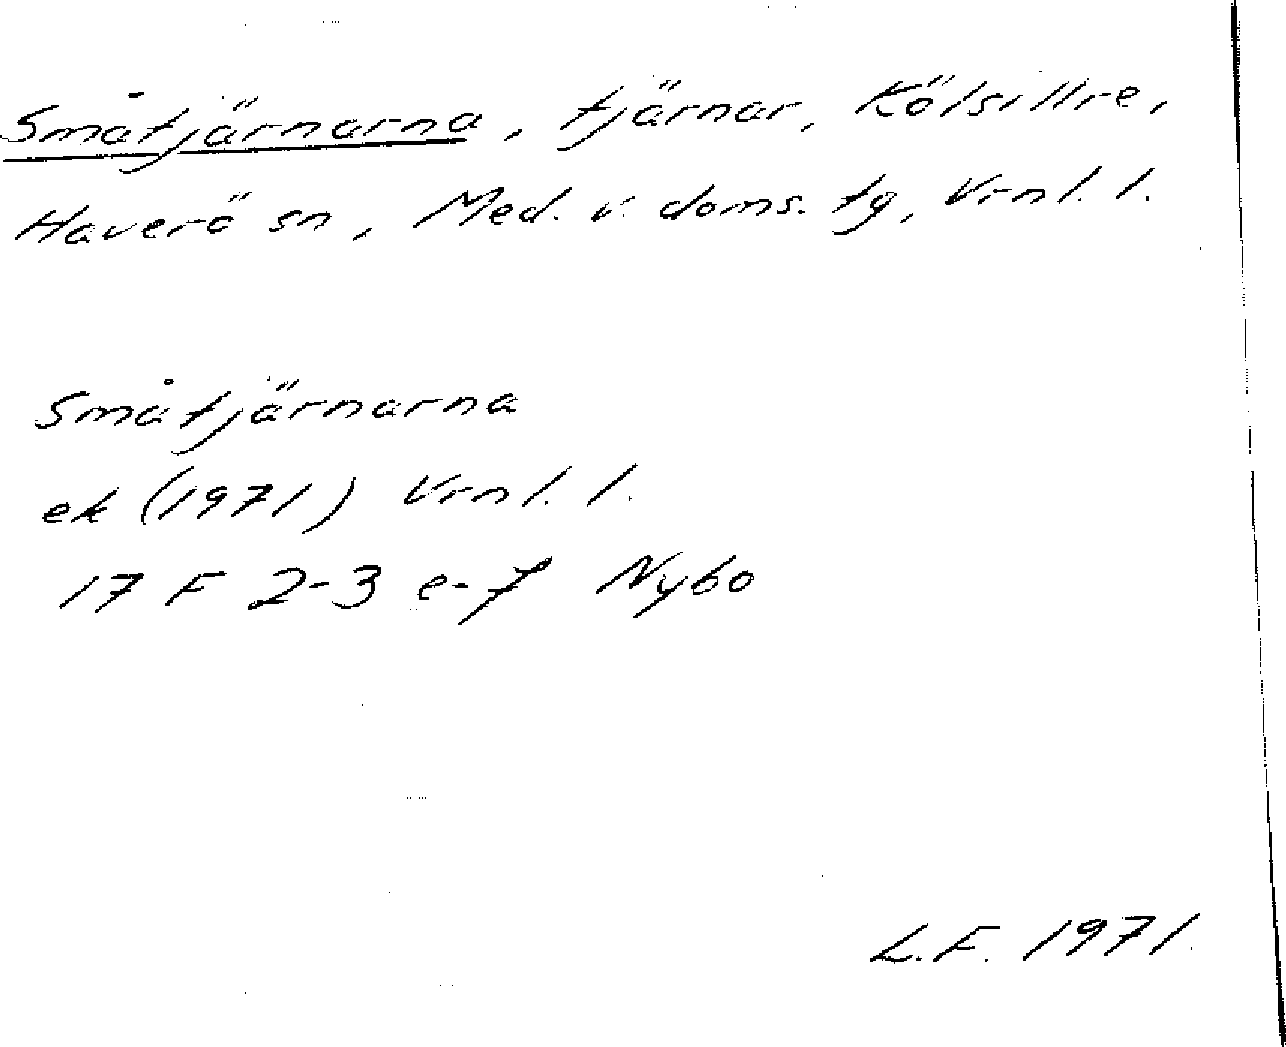 Småtjärnarna, tjärnar, Kölsillre,
Haverö sn, Med. v. doms. tg, Vrnl. l.
Småtjärnarna
ek (1971) Vrnl. l.
17 F 2-3 e-f Nybo
L.F. 1971.